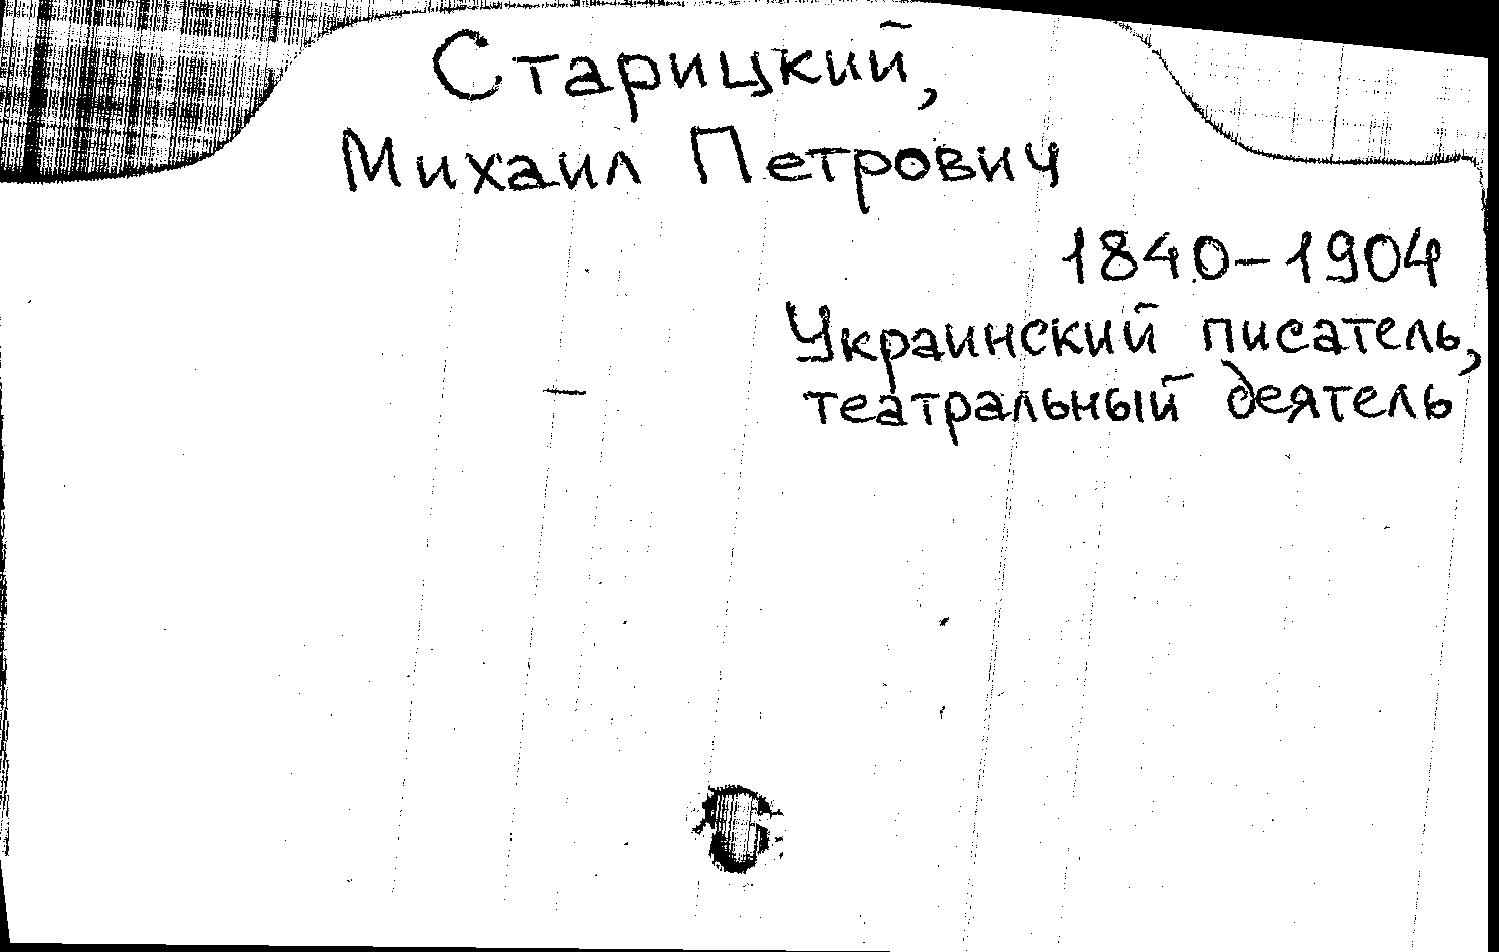 Старицкий,
Михаил Петрович
1840-1904
Украинский писатель,
театральный деятель